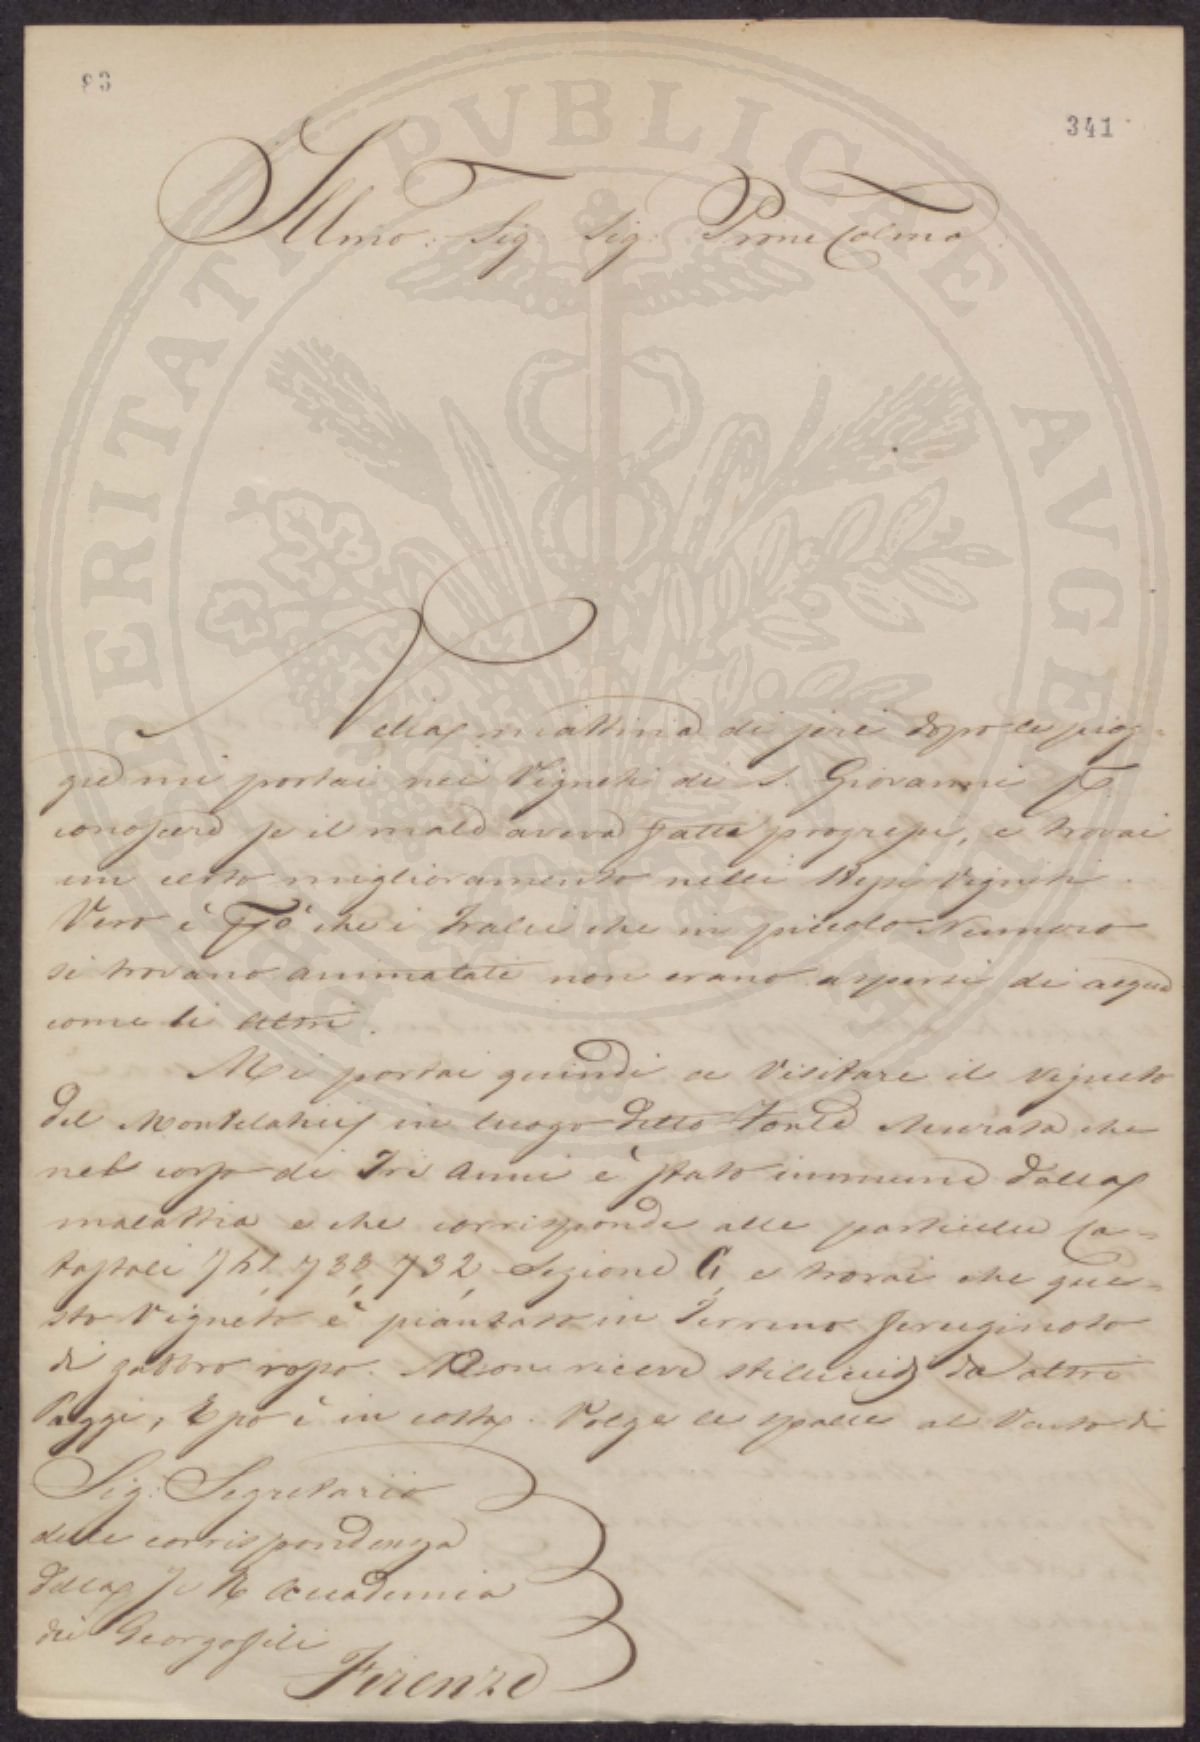 83
341
Illmo. Sig. Sig. Prone Colmo.
Nella mattina di jeri dopo le piog=
gie mi portai nei Vigneti di S. Giovanni p
conoscere se il male aveva fatti progressi, e trovai
un certo miglioramento nelli stessi Vigneti.
Vero è però che i Tralci che in piccolo Numero
si trovano ammalati non erano aspersi di acqua
come li altri.
Mi portai quindi a visitare il vigneto
del Montelatici in luogo detto Fonte Murata che
nel corso di Tre Anni è stato immune dalla
malattia e che corrisponde alle particelle Ca=
tastali 741, 733, 732, Sezione G, e trovai che que=
sto Vigneto è piantato in Terreno ferruginoso
di gabbro rosso. Non riceve stillicidj da altri
Poggi, Esso è in costa. Volge le spalle al Vento di
Sig: Segretario
delle corrispondenza
della I e R Accademia
dei Georgofili
Firenze
PROSPERITATI PVBLICAE AVGENDAE